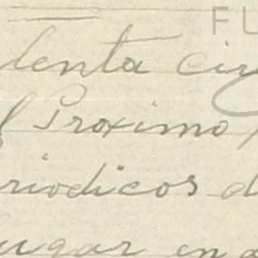 FU
lenta ciu
l Proximo
riodicos d
lugar en a